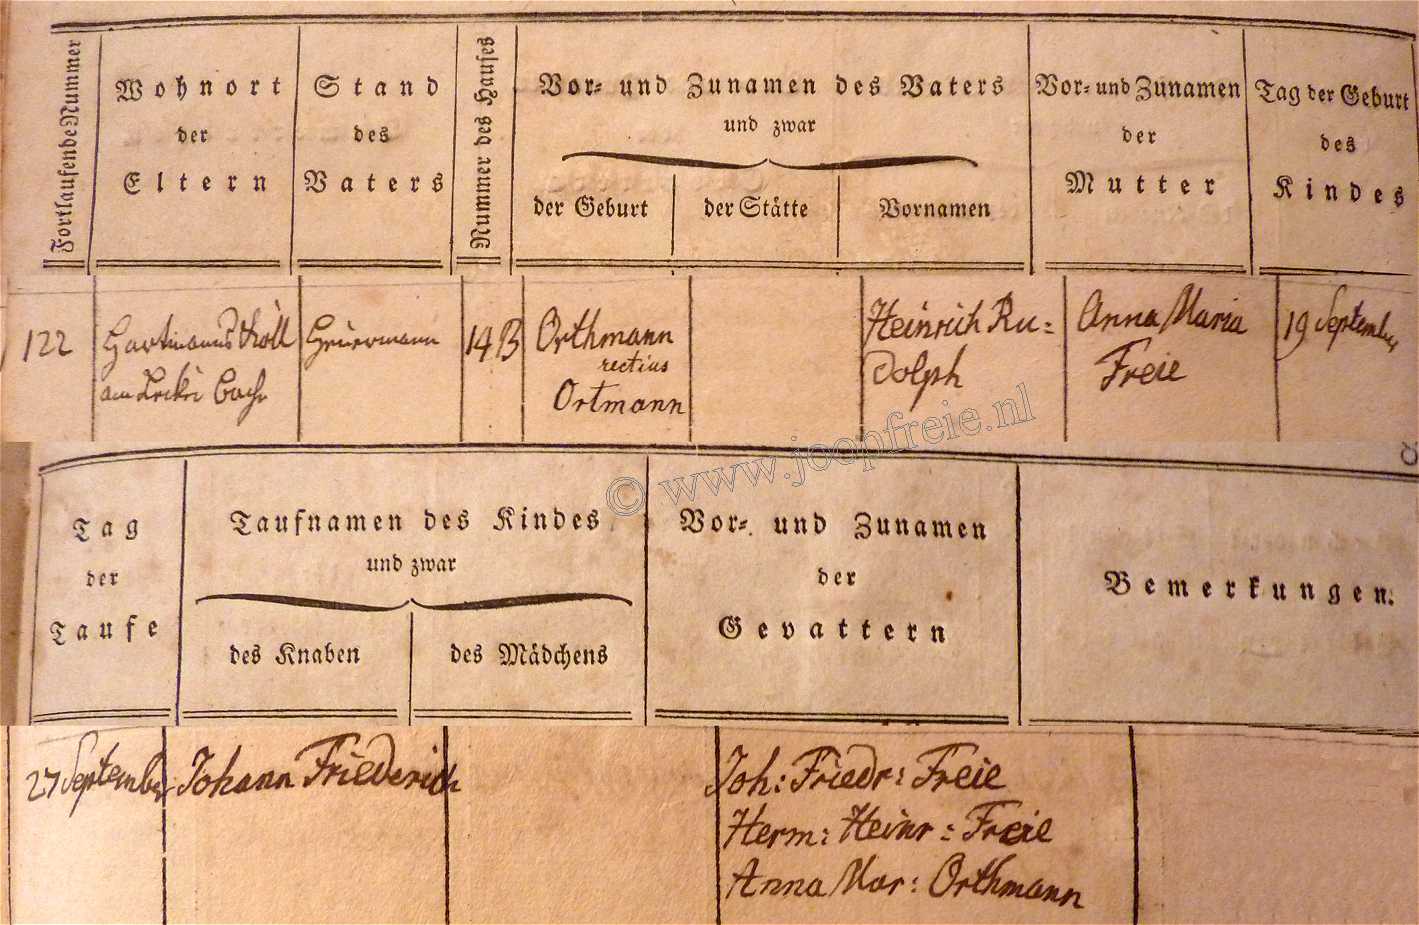 Fortlaufende Nummer
Wohnort
der
Eltern
Stand
des
Vaters
Nummer des Hauses
Vor- und Zunamen des Vaters
und zwar
der Geburt
der Stätte
Vornamen
Vor- und Zunamen
der
Mutter
Tag der Geburt
des
Kindes
122
am
Heuermann
14 B
Orthmann
rectius
Ortmann
Heinrich Ru=
dolph
Anna Maria
Freie
19 September
© www.joopfreie.nl
Tag
der
Taufe
Taufnamen des Kindes
und zwar
des Knaben
des Mädchens
Vor- und Zunamen
der
Gevattern
Bemerkungen.
27 September
Johann Friederich
Joh: Friedr: Freie
Herm: Heinr: Freie
Anna Mar: Orthmann